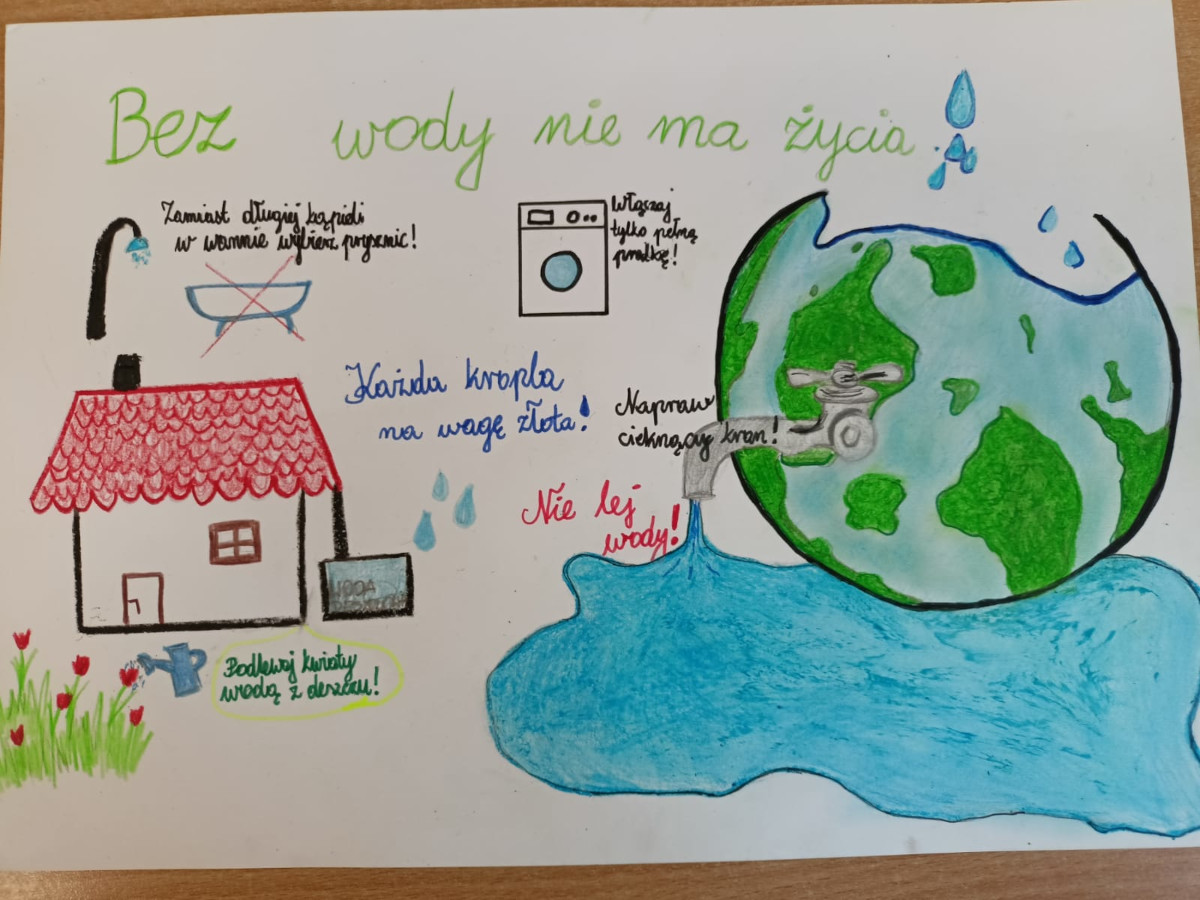 Bez wody nie ma życia
Zamiast długiej kąpieli
w wannie wybierz prysznic!
Włączaj
tylko pełną
pralkę!
Każda kropla
na wagę złota!
Napraw
cieknący kran!
Nie lej
wody!
WODA
Podlewaj kwiaty
wodą z deszczu!